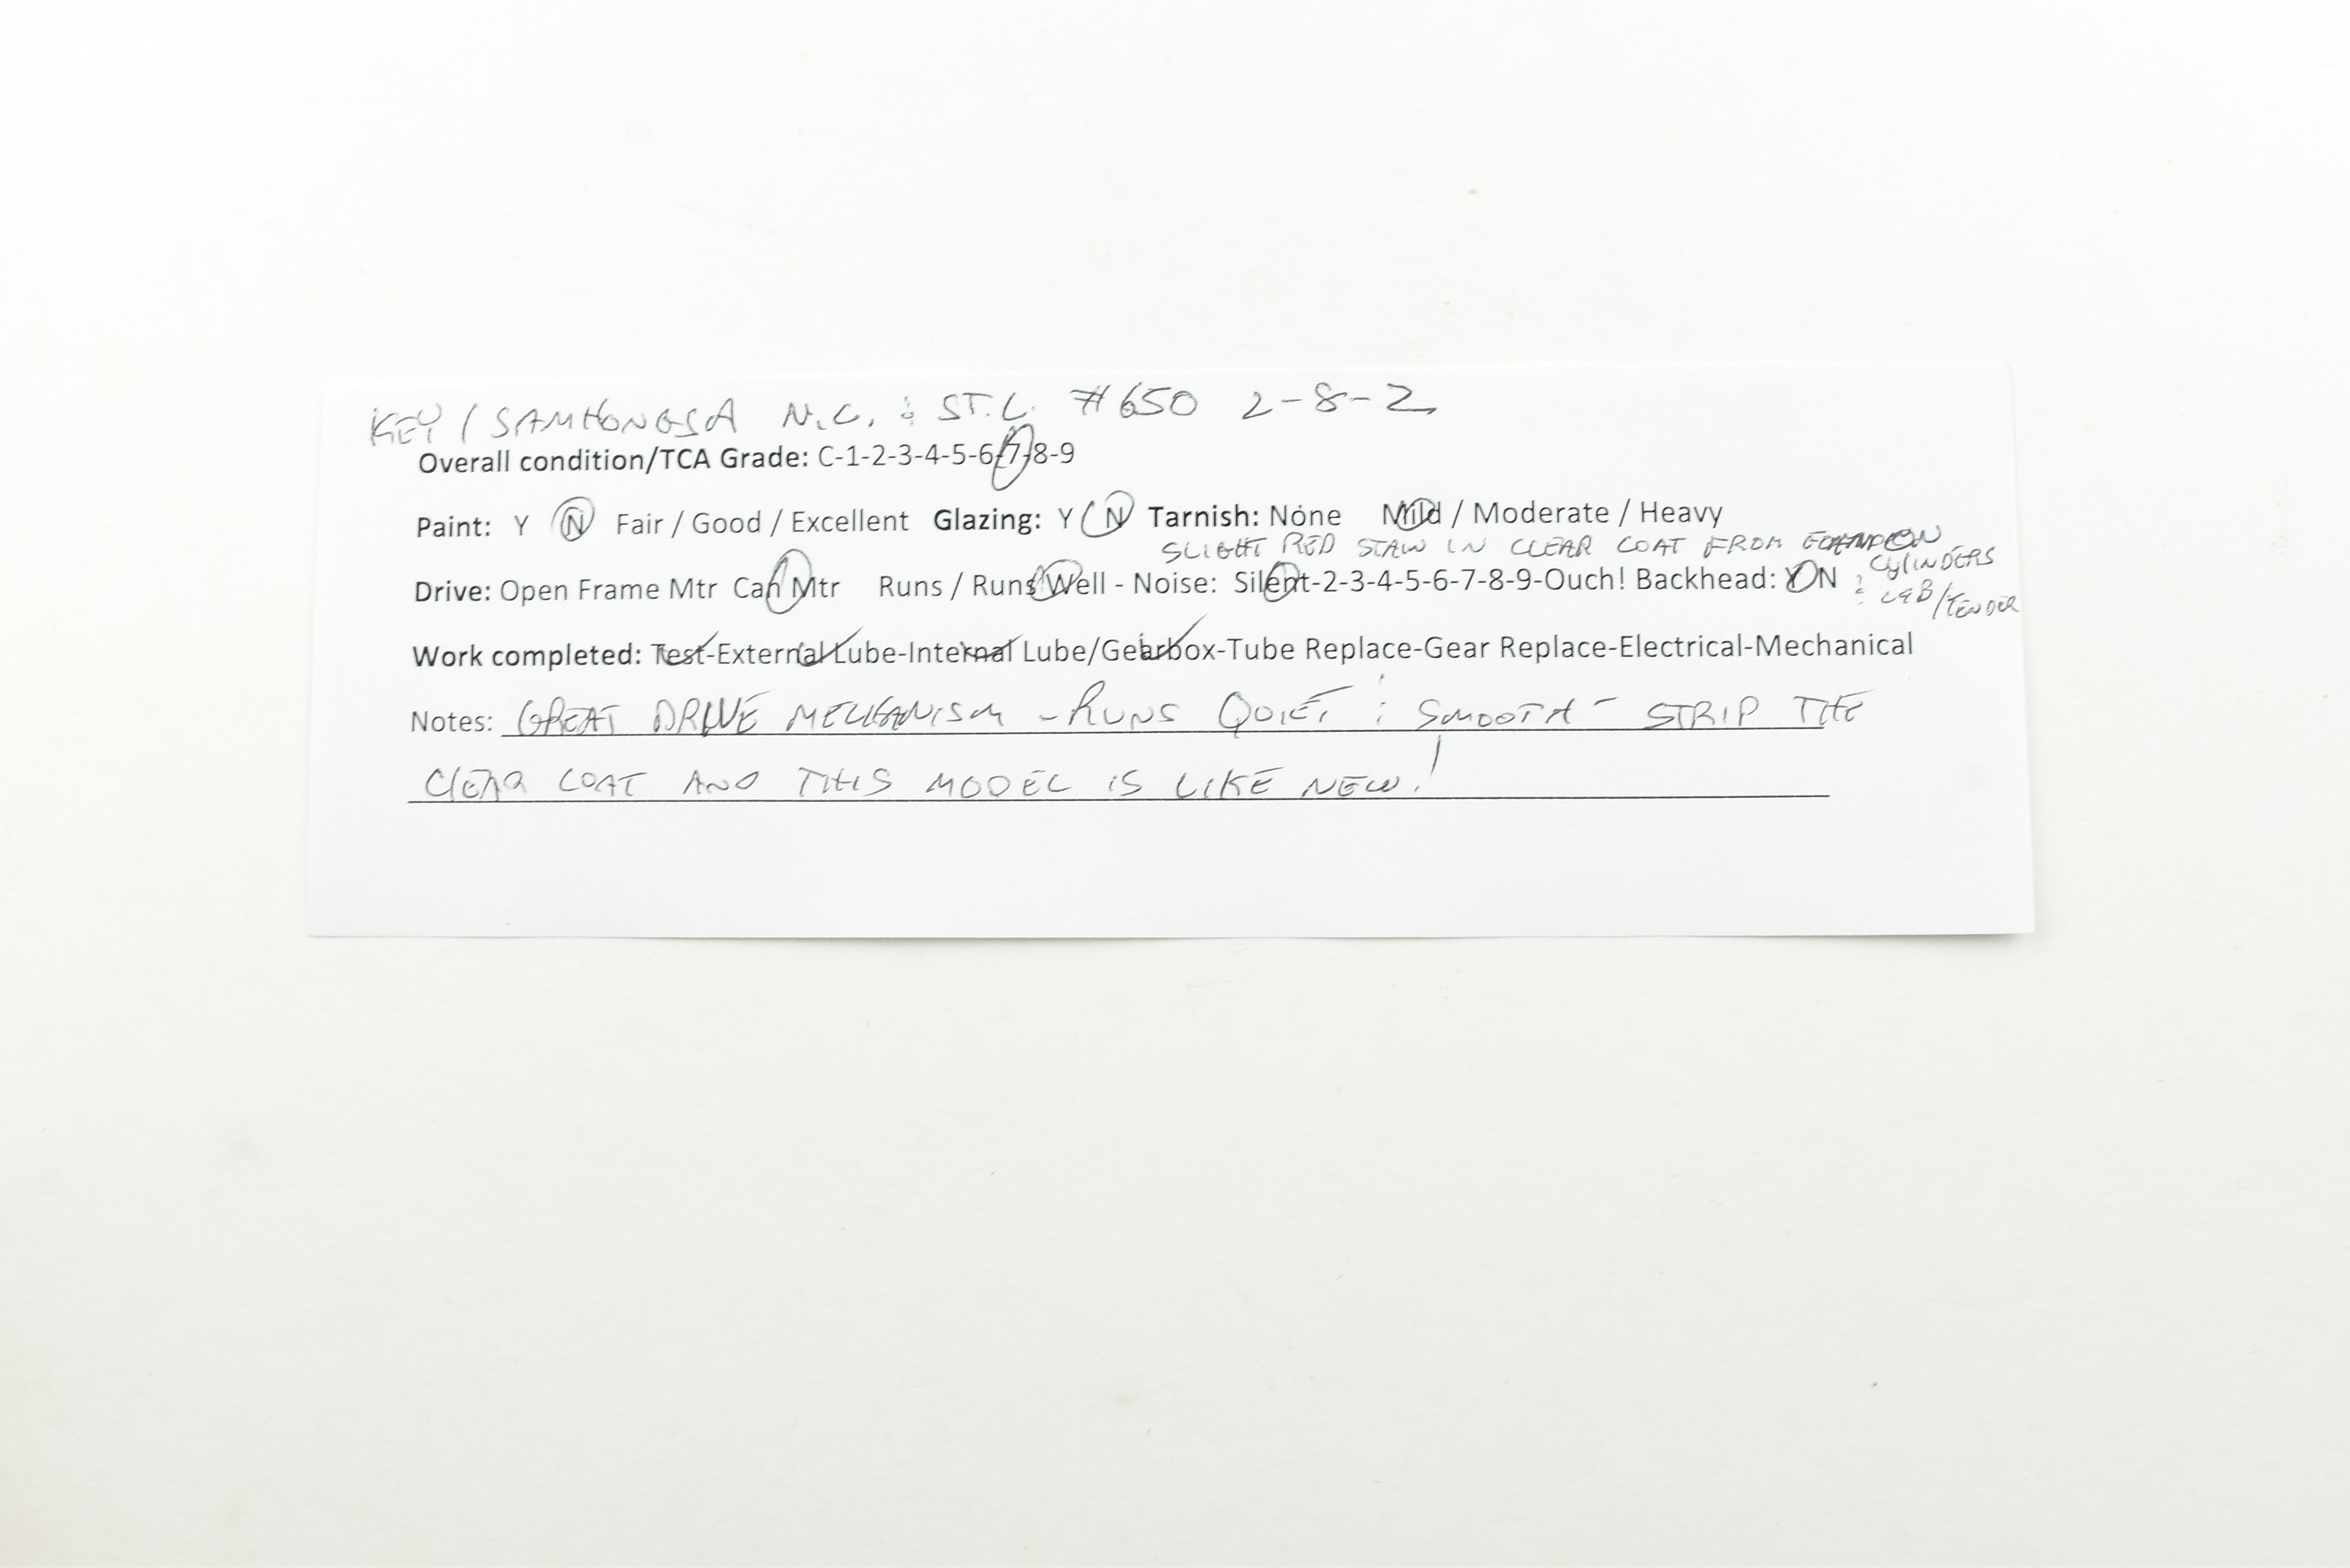 KEY / SAMHONGSA N.C. & ST.L. #650 2-8-2
Overall condition/TCA Grade: C-1-2-3-4-5-6-7-8-9
Paint: Y N Fair / Good / Excellent Glazing: Y / N Tarnish: None Mild / Moderate / Heavy
SLIGHT RED STAIN IN CLEAR COAT FROM ON
CYLINDERS
& CAB/TENDER
Drive: Open Frame Mtr Can Mtr Runs / Runs Well - Noise: Silent-2-3-4-5-6-7-8-9-Ouch! Backhead: Y N
Work completed: Test-External Lube-Internal Lube/Gearbox-Tube Replace-Gear Replace-Electrical-Mechanical
Notes: GREAT DRIVE MECHANISM - RUNS QUIET & SMOOTH - STRIP THE
CLEAR COAT AND THIS MODEL IS LIKE NEW!